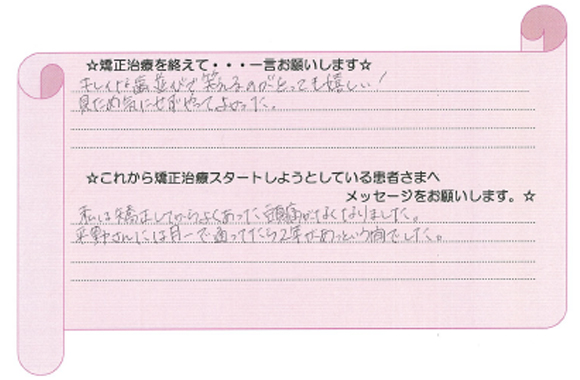 ☆矯正治療を終えて・・・一言お願いします☆
キレイな歯並びで笑えるのがとっても嬉しい！
見ため気にせずやってよかった。
☆これから矯正治療スタートしようとしている患者さまへ
メッセージをお願いします。☆
私は矯正してからよくあった頭痛がなくなりました。
平野さんには月一で通ってたら2年があっという間でした。